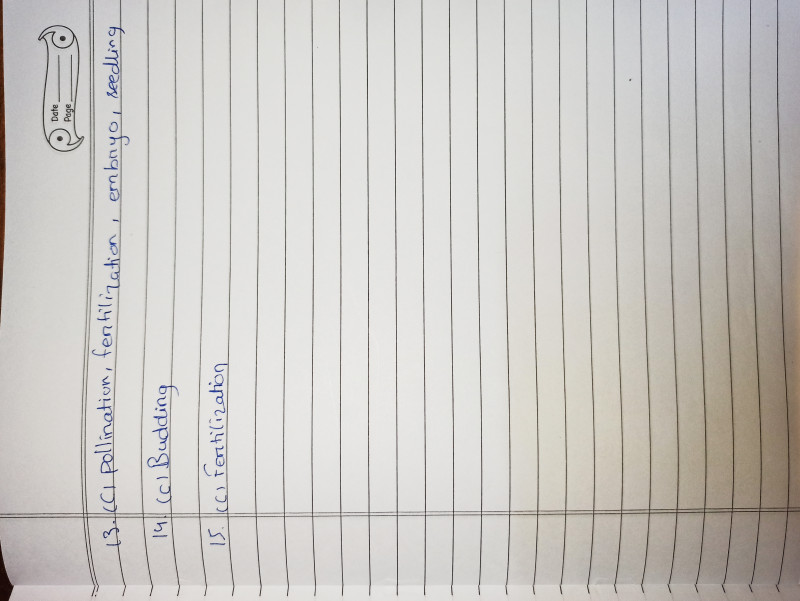 Date
Page
13. (C) pollination, fertilization, embryo, seedling
14. (c) Budding
15. (c) Fertilization